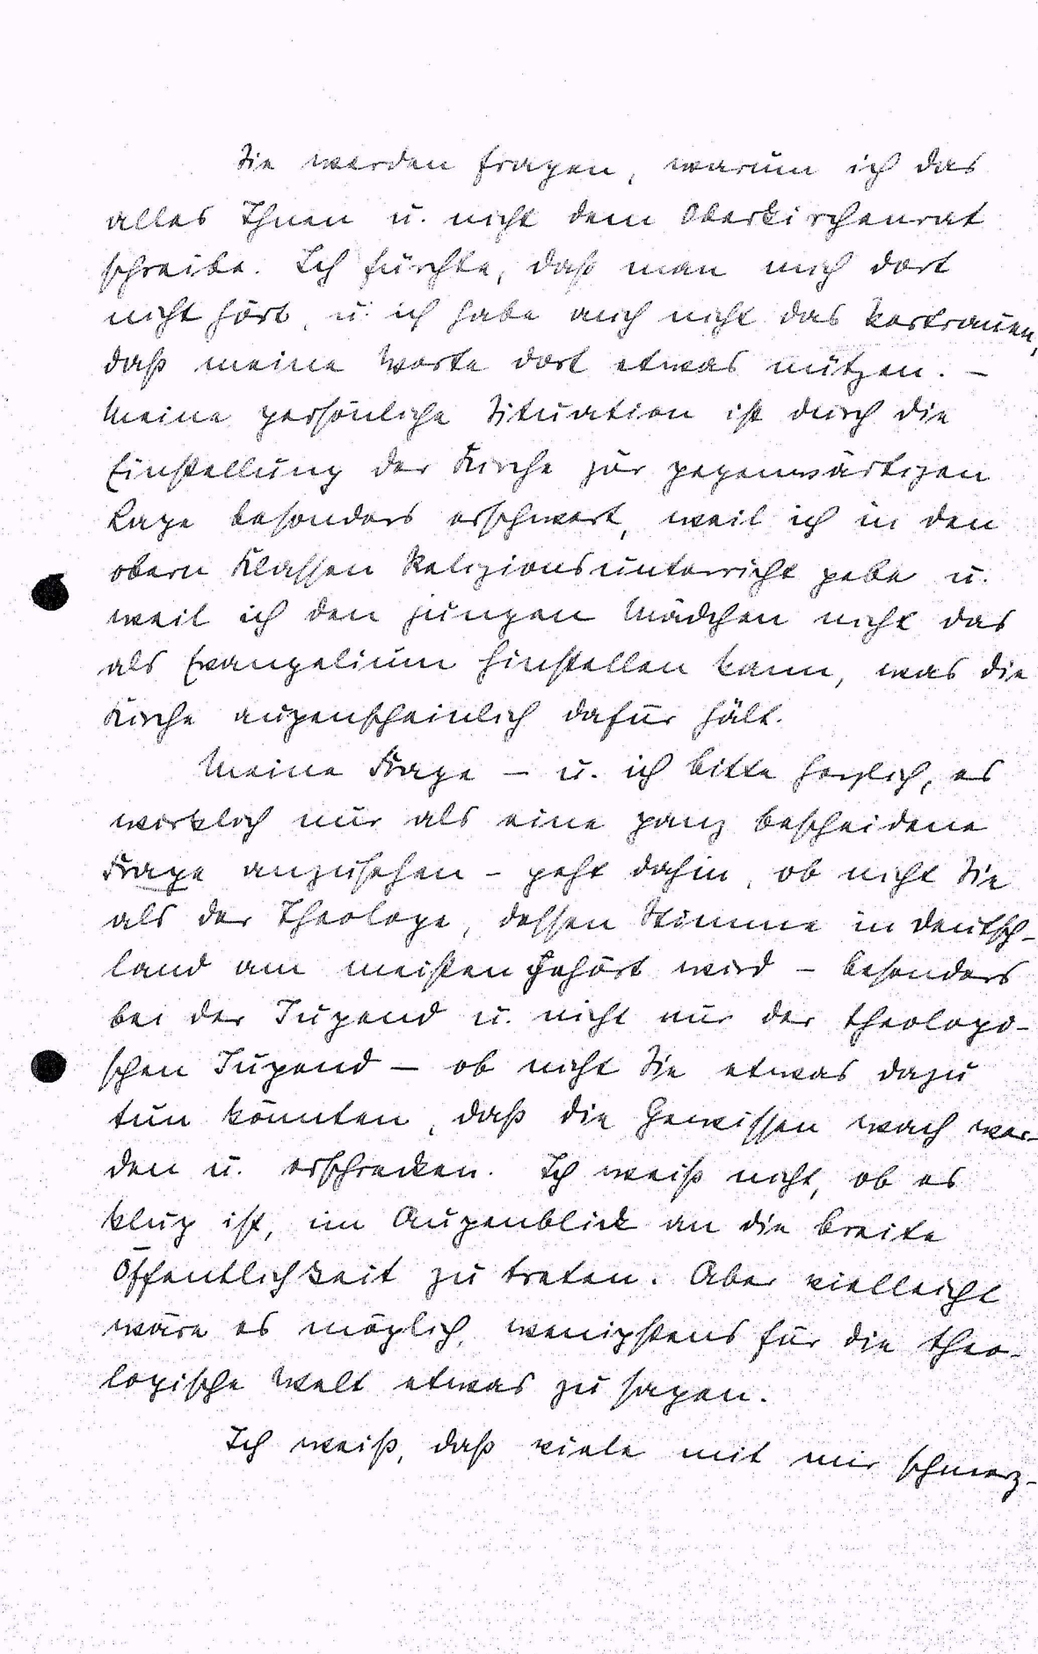 Sie werden fragen, warum ich das
alles Ihnen u. nicht dem Oberkirchenrat
schreibe. Ich fürchte, daß man mich dort
nicht hört, u. ich habe auch nicht das Vertrauen,
daß meine Worte dort etwas nützen. –
Meine persönliche Situation ist durch die
Einstellung der Kirche zur gegenwärtigen
Lage besonders erschwert, weil ich in den
obern Klassen Religionsunterricht gebe u.
weil ich den jungen Mädchen nicht das
als Evangelium hinstellen kann, was die
Kirche augenscheinlich dafür hält.
Meine Frage – u. ich bitte herzlich, es
wirklich nur als eine ganz bescheidene
Frage anzusehen – geht dahin, ob nicht Sie
als der Theologe, dessen Stimme in Deutsch-
land am meisten gehört wird – besonders
bei der Jugend u. nicht nur der theologi-
schen Jugend – ob nicht Sie etwas dazu
tun könnten, daß die Gewissen wach wer-
den u. erschrecken. Ich weiß nicht, ob es
klug ist, im Augenblick an die breite
Öffentlichkeit zu treten. Aber vielleicht
wäre es möglich, wenigstens für die theo-
logische Welt etwas zu sagen.
Ich weiß, daß viele mit mir schmerz-